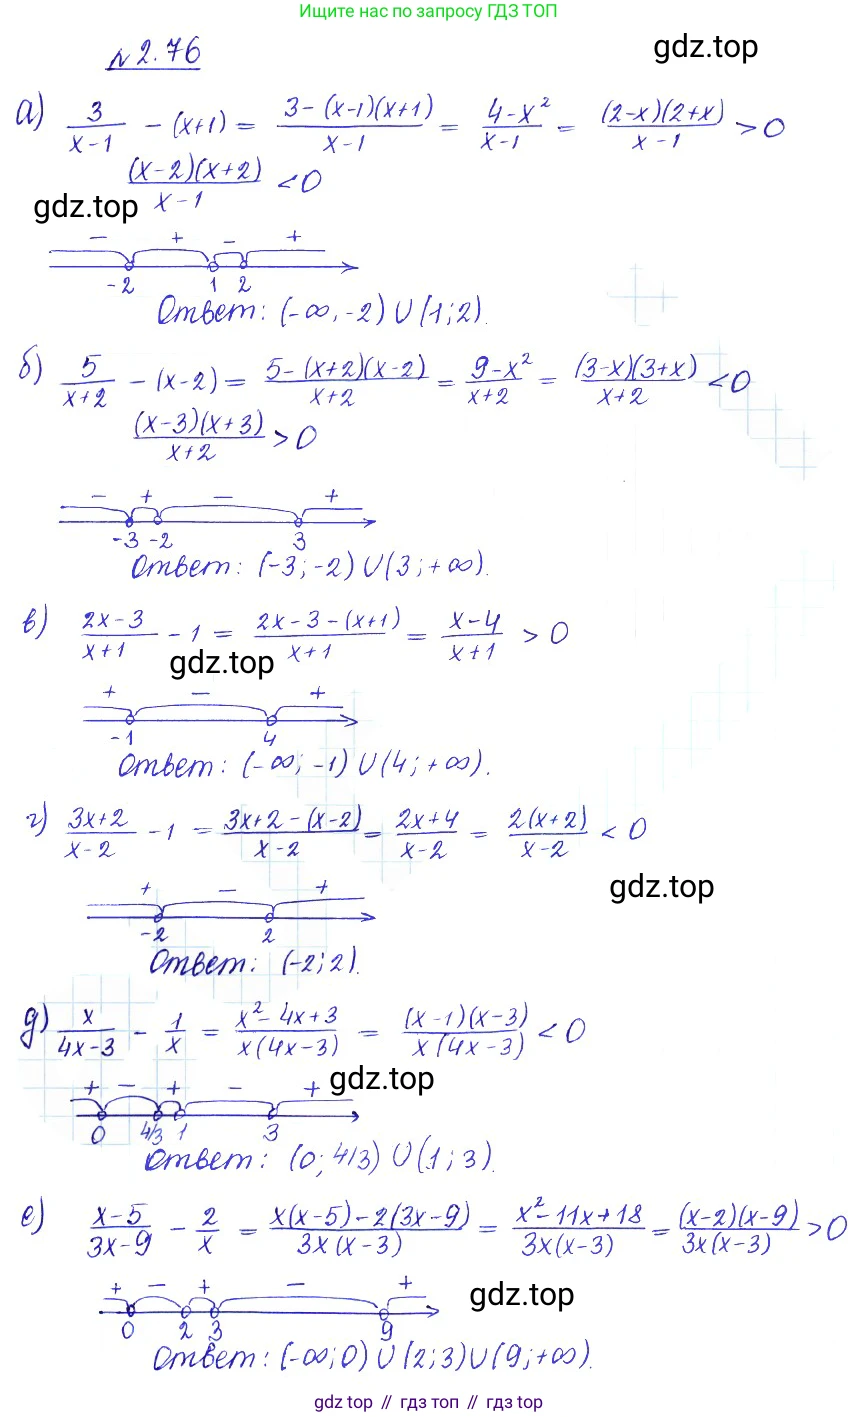 Ищите нас по запросу ГДЗ ТОП
№2.76
gdz.top
а) 3/(x-1) - (x+1) = (3-(x-1)(x+1))/(x-1) = (4-x²)/(x-1) = ((2-x)(2+x))/(x-1) > 0
((x-2)(x+2))/(x-1) < 0
gdz.top
- + - +
-2 1 2
Ответ: (-∞, -2) ∪ (1; 2).
б) 5/(x+2) - (x-2) = (5-(x+2)(x-2))/(x+2) = (9-x²)/(x+2) = ((3-x)(3+x))/(x+2) < 0
((x-3)(x+3))/(x+2) > 0
- + - +
-3 -2 3
Ответ: (-3; -2) ∪ (3; +∞).
в) (2x-3)/(x+1) - 1 = (2x-3-(x+1))/(x+1) = (x-4)/(x+1) > 0
gdz.top
+ - +
-1 4
Ответ: (-∞; -1) ∪ (4; +∞).
г) (3x+2)/(x-2) - 1 = (3x+2-(x-2))/(x-2) = (2x+4)/(x-2) = (2(x+2))/(x-2) < 0
gdz.top
+ - +
-2 2
Ответ: (-2; 2).
д) x/(4x-3) - 1/x = (x²-4x+3)/(x(4x-3)) = ((x-1)(x-3))/(x(4x-3)) < 0
gdz.top
+ - + - +
0 4/3 1 3
Ответ: (0; 4/3) ∪ (1; 3).
е) (x-5)/(3x-9) - 2/x = (x(x-5)-2(3x-9))/(3x(x-3)) = (x²-11x+18)/(3x(x-3)) = ((x-2)(x-9))/(3x(x-3)) > 0
+ - + - +
gdz.top
0 2 3 9
Ответ: (-∞; 0) ∪ (2; 3) ∪ (9; +∞).
gdz top // гдз топ // гдз top